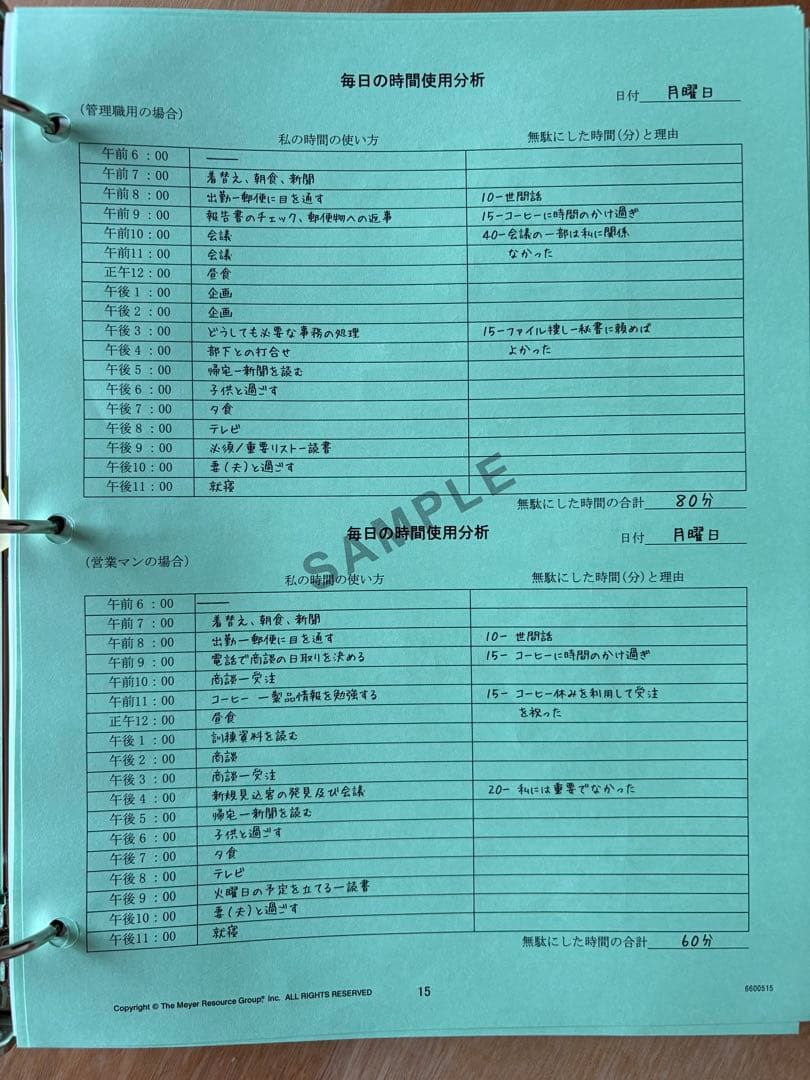 毎日の時間使用分析
日付 月曜日
(管理職用の場合)
私の時間の使い方 無駄にした時間(分)と理由
午前6:00 ——
午前7:00 着替え、朝食、新聞
午前8:00 出勤ー郵便に目を通す 10-世間話
午前9:00 報告書のチェック、郵便物への返事 15-コーヒーに時間のかけ過ぎ
午前10:00 会議 40-会議の一部は私に関係
午前11:00 会議 なかった
正午12:00 昼食
午後1:00 企画
午後2:00 企画
午後3:00 どうしても必要な事務の処理 15-ファイル捜しー秘書に頼めば
午後4:00 部下との打合せ よかった
午後5:00 帰宅ー新聞を読む
午後6:00 子供と過ごす
午後7:00 夕食
午後8:00 テレビ
午後9:00 必須/重要リストー読書
午後10:00 妻(夫)と過ごす
午後11:00 就寝
無駄にした時間の合計 80分
SAMPLE
毎日の時間使用分析
日付 月曜日
(営業マンの場合)
私の時間の使い方 無駄にした時間(分)と理由
午前6:00 ——
午前7:00 着替え、朝食、新聞
午前8:00 出勤ー郵便に目を通す 10- 世間話
午前9:00 電話で商談の日取りを決める 15- コーヒーに時間のかけ過ぎ
午前10:00 商談ー受注
午前11:00 コーヒー ー製品情報を勉強する 15- コーヒー休みを利用して受注
正午12:00 昼食 を祝った
午後1:00 訓練資料を読む
午後2:00 商談
午後3:00 商談ー受注
午後4:00 新規見込客の発見及び会議 20- 私には重要でなかった
午後5:00 帰宅ー新聞を読む
午後6:00 子供と過ごす
午後7:00 夕食
午後8:00 テレビ
午後9:00 火曜日の予定を立てるー読書
午後10:00 妻(夫)と過ごす
午後11:00 就寝
無駄にした時間の合計 60分
Copyright © The Meyer Resource Group,® Inc. ALL RIGHTS RESERVED
15
6600515